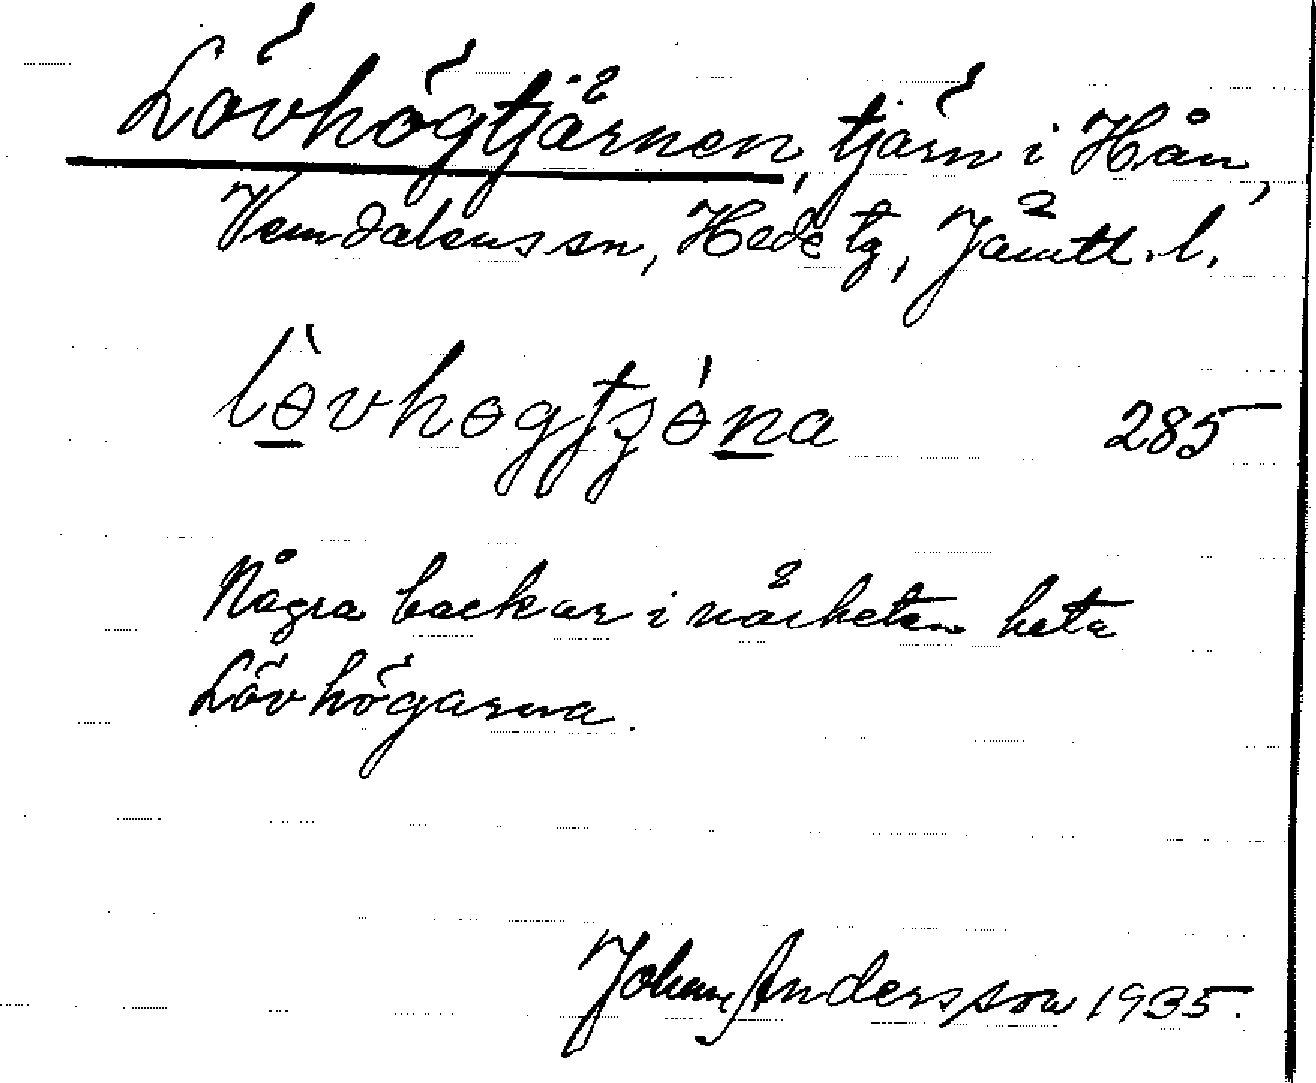 Lövhögtjärnen, tjärn i Hån,
Vemdalens sn, Hede tg, Jämtl. l.
lɵ̀vhɵgtʒɵ́na 285
Några backar i närheten heta
Lövhögarna.
Johan Andersson 1935.